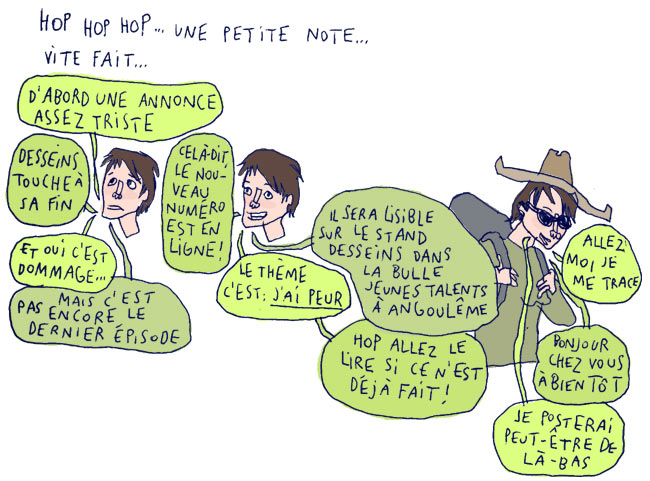 HOP HOP HOP... UNE PETITE NOTE...
VITE FAIT...
D'ABORD UNE ANNONCE
ASSEZ TRISTE
DESSEINS
TOUCHE À
SA FIN
ET OUI C'EST
DOMMAGE...
MAIS C'EST
PAS ENCORE LE
DERNIER ÉPISODE
CELÀ-DIT,
LE NOU-
VEAU
NUMÉRO
EST EN
LIGNE!
LE THÈME
C'EST: J'AI PEUR
IL SERA LISIBLE
SUR LE STAND
DESSEINS DANS
LA BULLE
JEUNES TALENTS
À ANGOULÊME
HOP ALLEZ LE
LIRE SI CE N'EST
DÉJÀ FAIT!
ALLEZ
MOI JE
ME TRACE
BONJOUR
CHEZ VOUS
À BIENTÔT
JE POSTERAI
PEUT-ÊTRE DE
LÀ-BAS